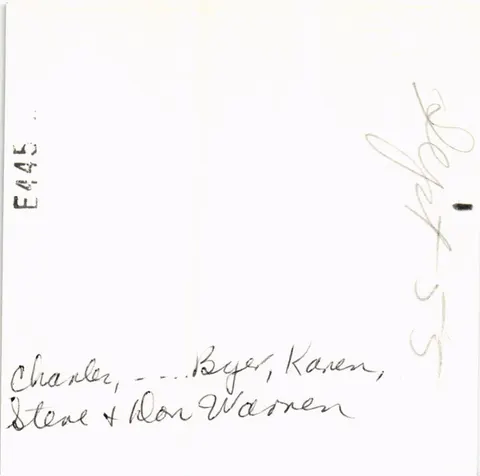 E445
Sept-55
Charles, - ... Byer, Karen,
Steve & Don Warren